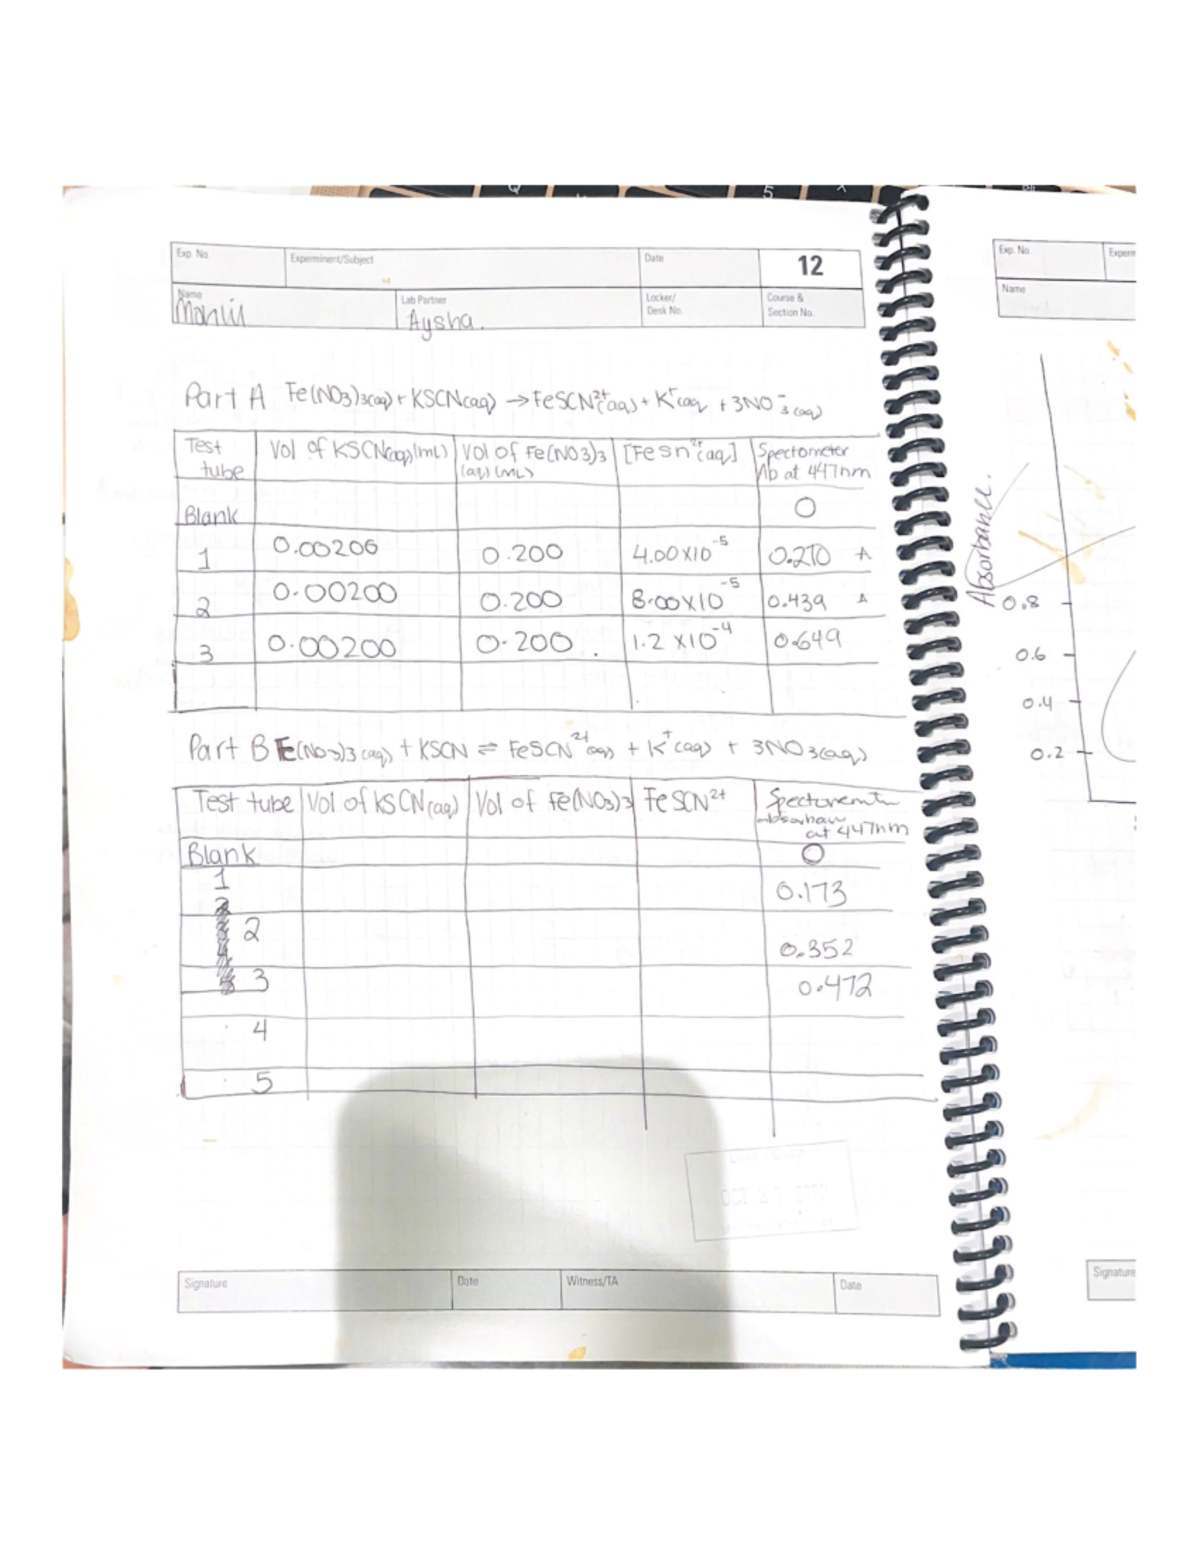 Exp. No.
Experiminent/Subject
Date
12
Name
Lab Partner
Locker/
Desk No.
Course &
Section No.
Aysha.
Part A Fe(NO3)3(aq) + KSCN(aq) → FeSCN2+(aq) + K+(aq + 3NO-3(aq)
Test tube
Vol of KSCN(aq)(mL)
Vol of Fe(NO3)3 (aq) (mL)
[Fesn2+(aq)]
Spectometer Ab at 447nm
Blank 0
1 0.00200 0.200 4.00x10-5 0.210 A
2 0.00200 0.200 8.00x10-5 0.439 A
3 0.00200 0.200. 1.2 x10-4 0.649
Part B Fe(NO3)3(aq) + KSCN ⇌ FeSCN2+(aq) + K+(aq) + 3NO3(aq)
Test tube Vol of KSCN(aq) Vol of Fe(NO3)3 FeSCN2+
at 447nm
Blank 0
1 0.173
2 0.352
3 0.472
4
5
Signature
Date
Witness/TA
Date
Exp. No
Experm
Name
Absorbance.
0.8
0.6
0.4
0.2
Signature